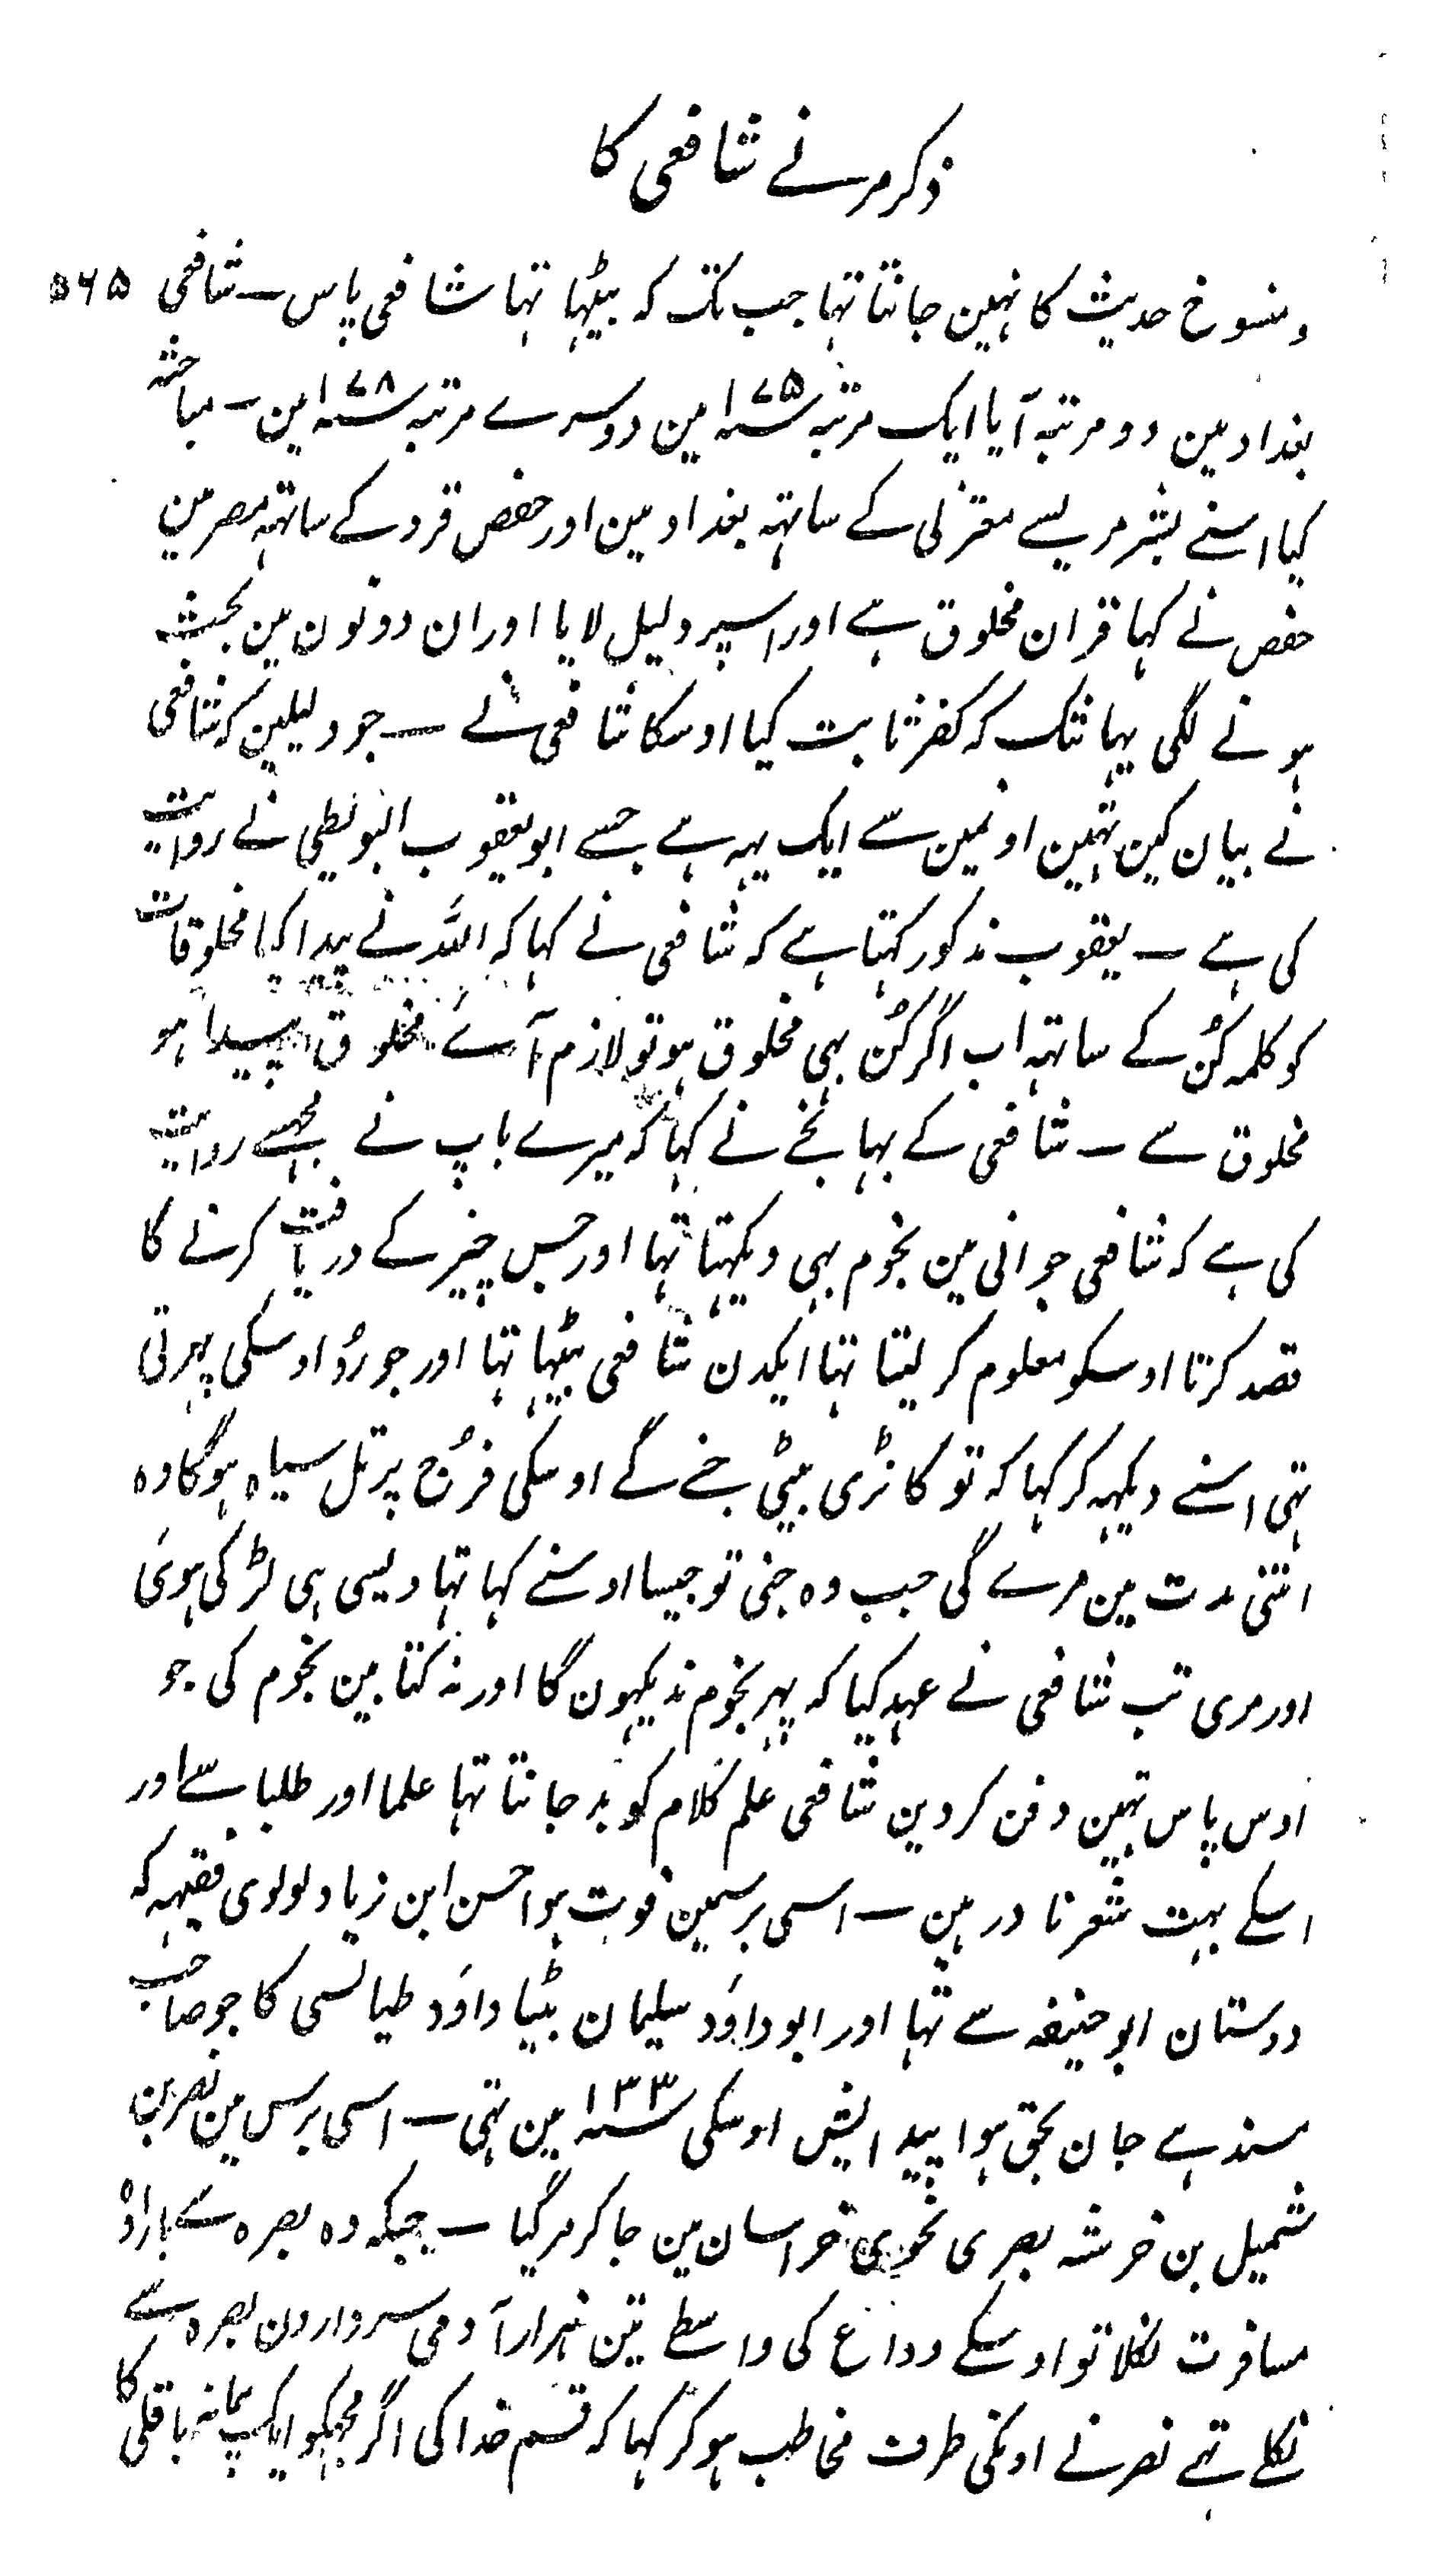 ذکر مرنے شافعی کا
ومنسوخ حدیث کا نہین جانتا تہا جب تک کہ بیٹھا تہا شافعی پاس — شافعی ۵۶۵
بغداد مین دو مرتبہ آیا ایک مرتبہ سنہ ۱۷۵ مین دوسرے مرتبہ سنہ ۱۷۸ مین — مباحثہ
کیا اسنے بشر مریسے معتزلی کے ساتہہ بغداد مین اور حفص قرد کے ساتہہ مصر مین
حفص نے کہا قران مخلوق ہے اور اسپر دلیل لایا اور ان دونون مین بحث
ہونے لگی یہانتک کہ کفر ثابت کیا اوسکا شافعی نے — جو دلیلین کہ شافعی
نے بیان کین تہین اونمین سے ایک یہہ ہے جسے ابو یعقوب البویطی نے روایت
کی ہے — یعقوب مذکور کہتا ہے کہ شافعی نے کہا کہ اللہ نے پیدا کیا مخلوقات
کو کلمہ کُن کے ساتہہ اب اگر کُن بہی مخلوق ہو تو لازم آئے مخلوق پیدا ہو
مخلوق سے — شافعی کے بہانجے نے کہا کہ میرے باپ نے مجہسے روایت
کی ہے کہ شافعی جوانی مین نجوم بہی دیکہتا تہا اور جس چیز کے دریافت کرنے کا
قصد کرتا اوسکو معلوم کر لیتا تہا ایکدن شافعی بیٹہا تہا اور جورُو اوسکی پہرتی
تہی اسنے دیکہہ کر کہا کہ تو کانڑی بیٹی جنے گے اوسکی فرُج پر تل سیاہ ہوگا وہ
اتنی مدت مین مرے گی جب وہ جنی تو جیسا اوسنے کہا تہا ویسی ہی لڑکی ہوئی
اور مری تب شافعی نے عہد کیا کہ پہر نجوم ندیکہون گا اور نہ کتابین نجوم کی جو
اوس پاس تہین دفن کردین شافعی علم کلام کو بد جانتا تہا علما اور طلبا سے اور
اسکے بہت شعر نادر ہین — اسی برسمین فوت ہوا حسن ابن زیاد لولوی فقیہہ کہ
دوستان ابو حنیفہ سے تہا اور ابو داوَد سلیمان بیٹا داوَد طیالسی کا جو صاحب
مسند ہے جان بحق ہوا پیدایش اوسکی سنہ ۱۳۳ مین تہی — اسی برس مین نصر بن
شمیل بن خرشہ بصری نحوی خراسان مین جا کر مر گیا — جبکہ وہ بصرہ سے بارادہ
مسافرت نکلا تو اوسکے وداع کی واسطے تین ہزار آدمی سردارون بصرہ سے
نکلے تہے نصر نے اونکی طرف مخاطب ہو کر کہا کہ قسم خدا کی اگر مجہکو ایک پیمانہ باقلی کا